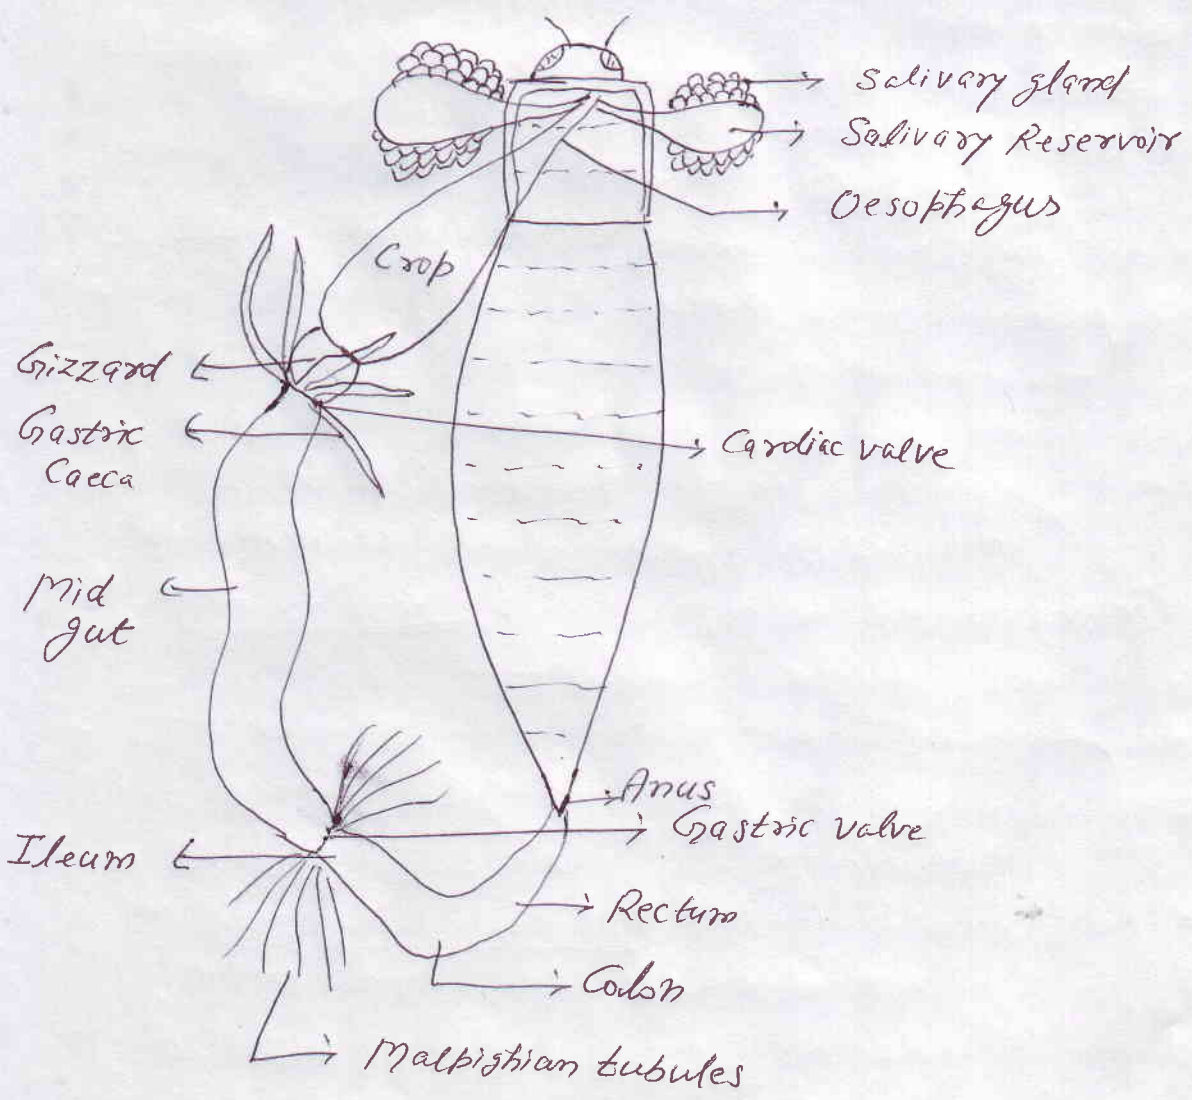 Salivary gland
Salivary Reservoir
Oesophagus
Crop
Gizzard
Gastric
Caeca
Cardiac valve
Mid
gut
Anus
Gastric valve
Ileum
Rectum
Colon
Malpighian tubules